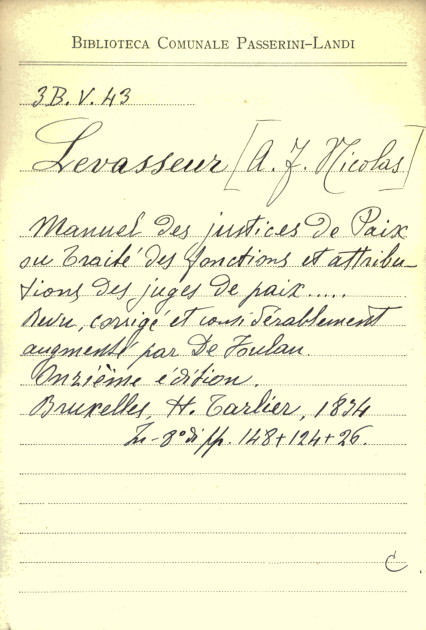 BIBLIOTECA COMUNALE PASSERINI-LANDI
3B. V. 43
Levasseur [A. J. Nicolas]
Manuel des justices de Paix
ou Traité des fonctions et attribu-
tions des juges de paix.....
Revu, corrigé et considérablement
augmenté par De Foulan.
Onzième édition.
Bruxelles, H. Tarlier, 1834
In-8° di pp. 148+124+26.
C